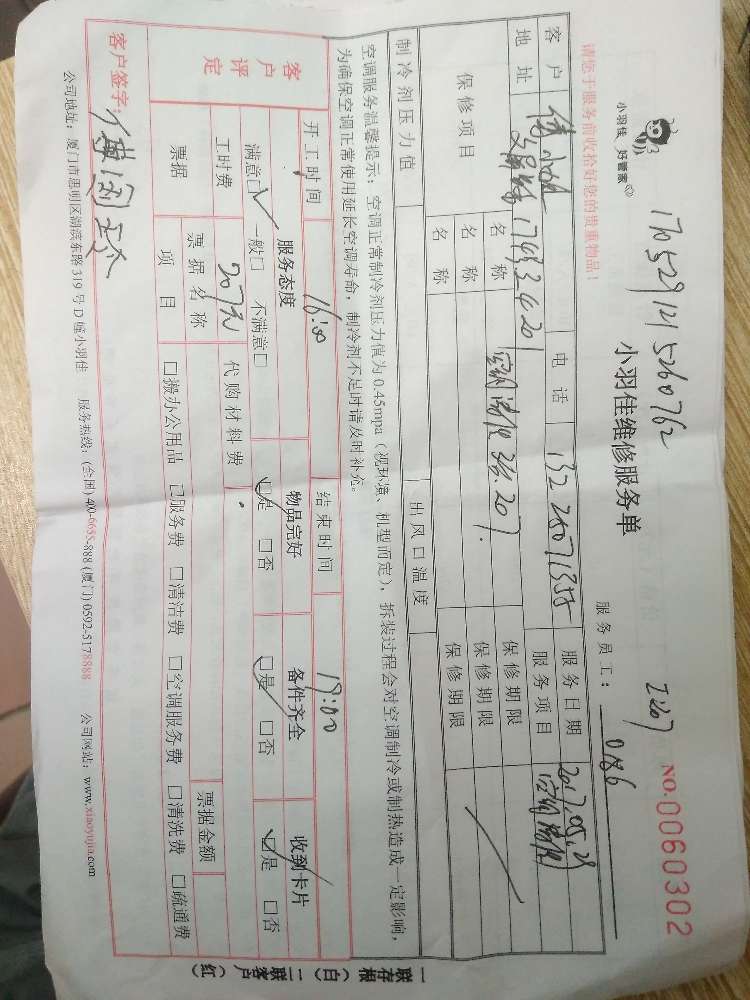 小羽佳 好管家
17052912152607​62
2:207
小羽佳维修服务单
NO.0060302
请您于服务前收拾好您的贵重物品!
服务员工: 0186
客户
电话 132 2807 1355
服务日期 2017.05.29
地址
服务项目 空调清洗
保修项目
名称 空调清洗 3台.207.
保修期限
名称
保修期限
名称
保修期限
制冷剂压力值
出风口温度
空调服务温馨提示:空调正常制冷剂压力值为0.45mpa(视环境、机型而定),拆装过程会对空调制冷或制热造成一定影响,
为确保空调正常使用延长空调寿命,制冷剂不足时请及时补充。
开工时间 16:00 结束时间 19:00
客户评定
服务态度 物品完好 备件齐全 收到卡片
满意□✓ 一般□ 不满意□ ☑是 □否 ☑是 □否 ☑是 □否
工时费 207元 代购材料费
票据 票据名称 票据金额
项目 □搬办公用品 □服务费 □清洁费 □空调服务费 □清洗费 □疏通费
客户签字:
公司地址:厦门市思明区湖滨东路319号D幢小羽佳 服务热线:(全国)400-6655-888 (厦门)0592-5178888 公司网站:www.xiaoyujia.com
一联存根(白) 二联客户(红)